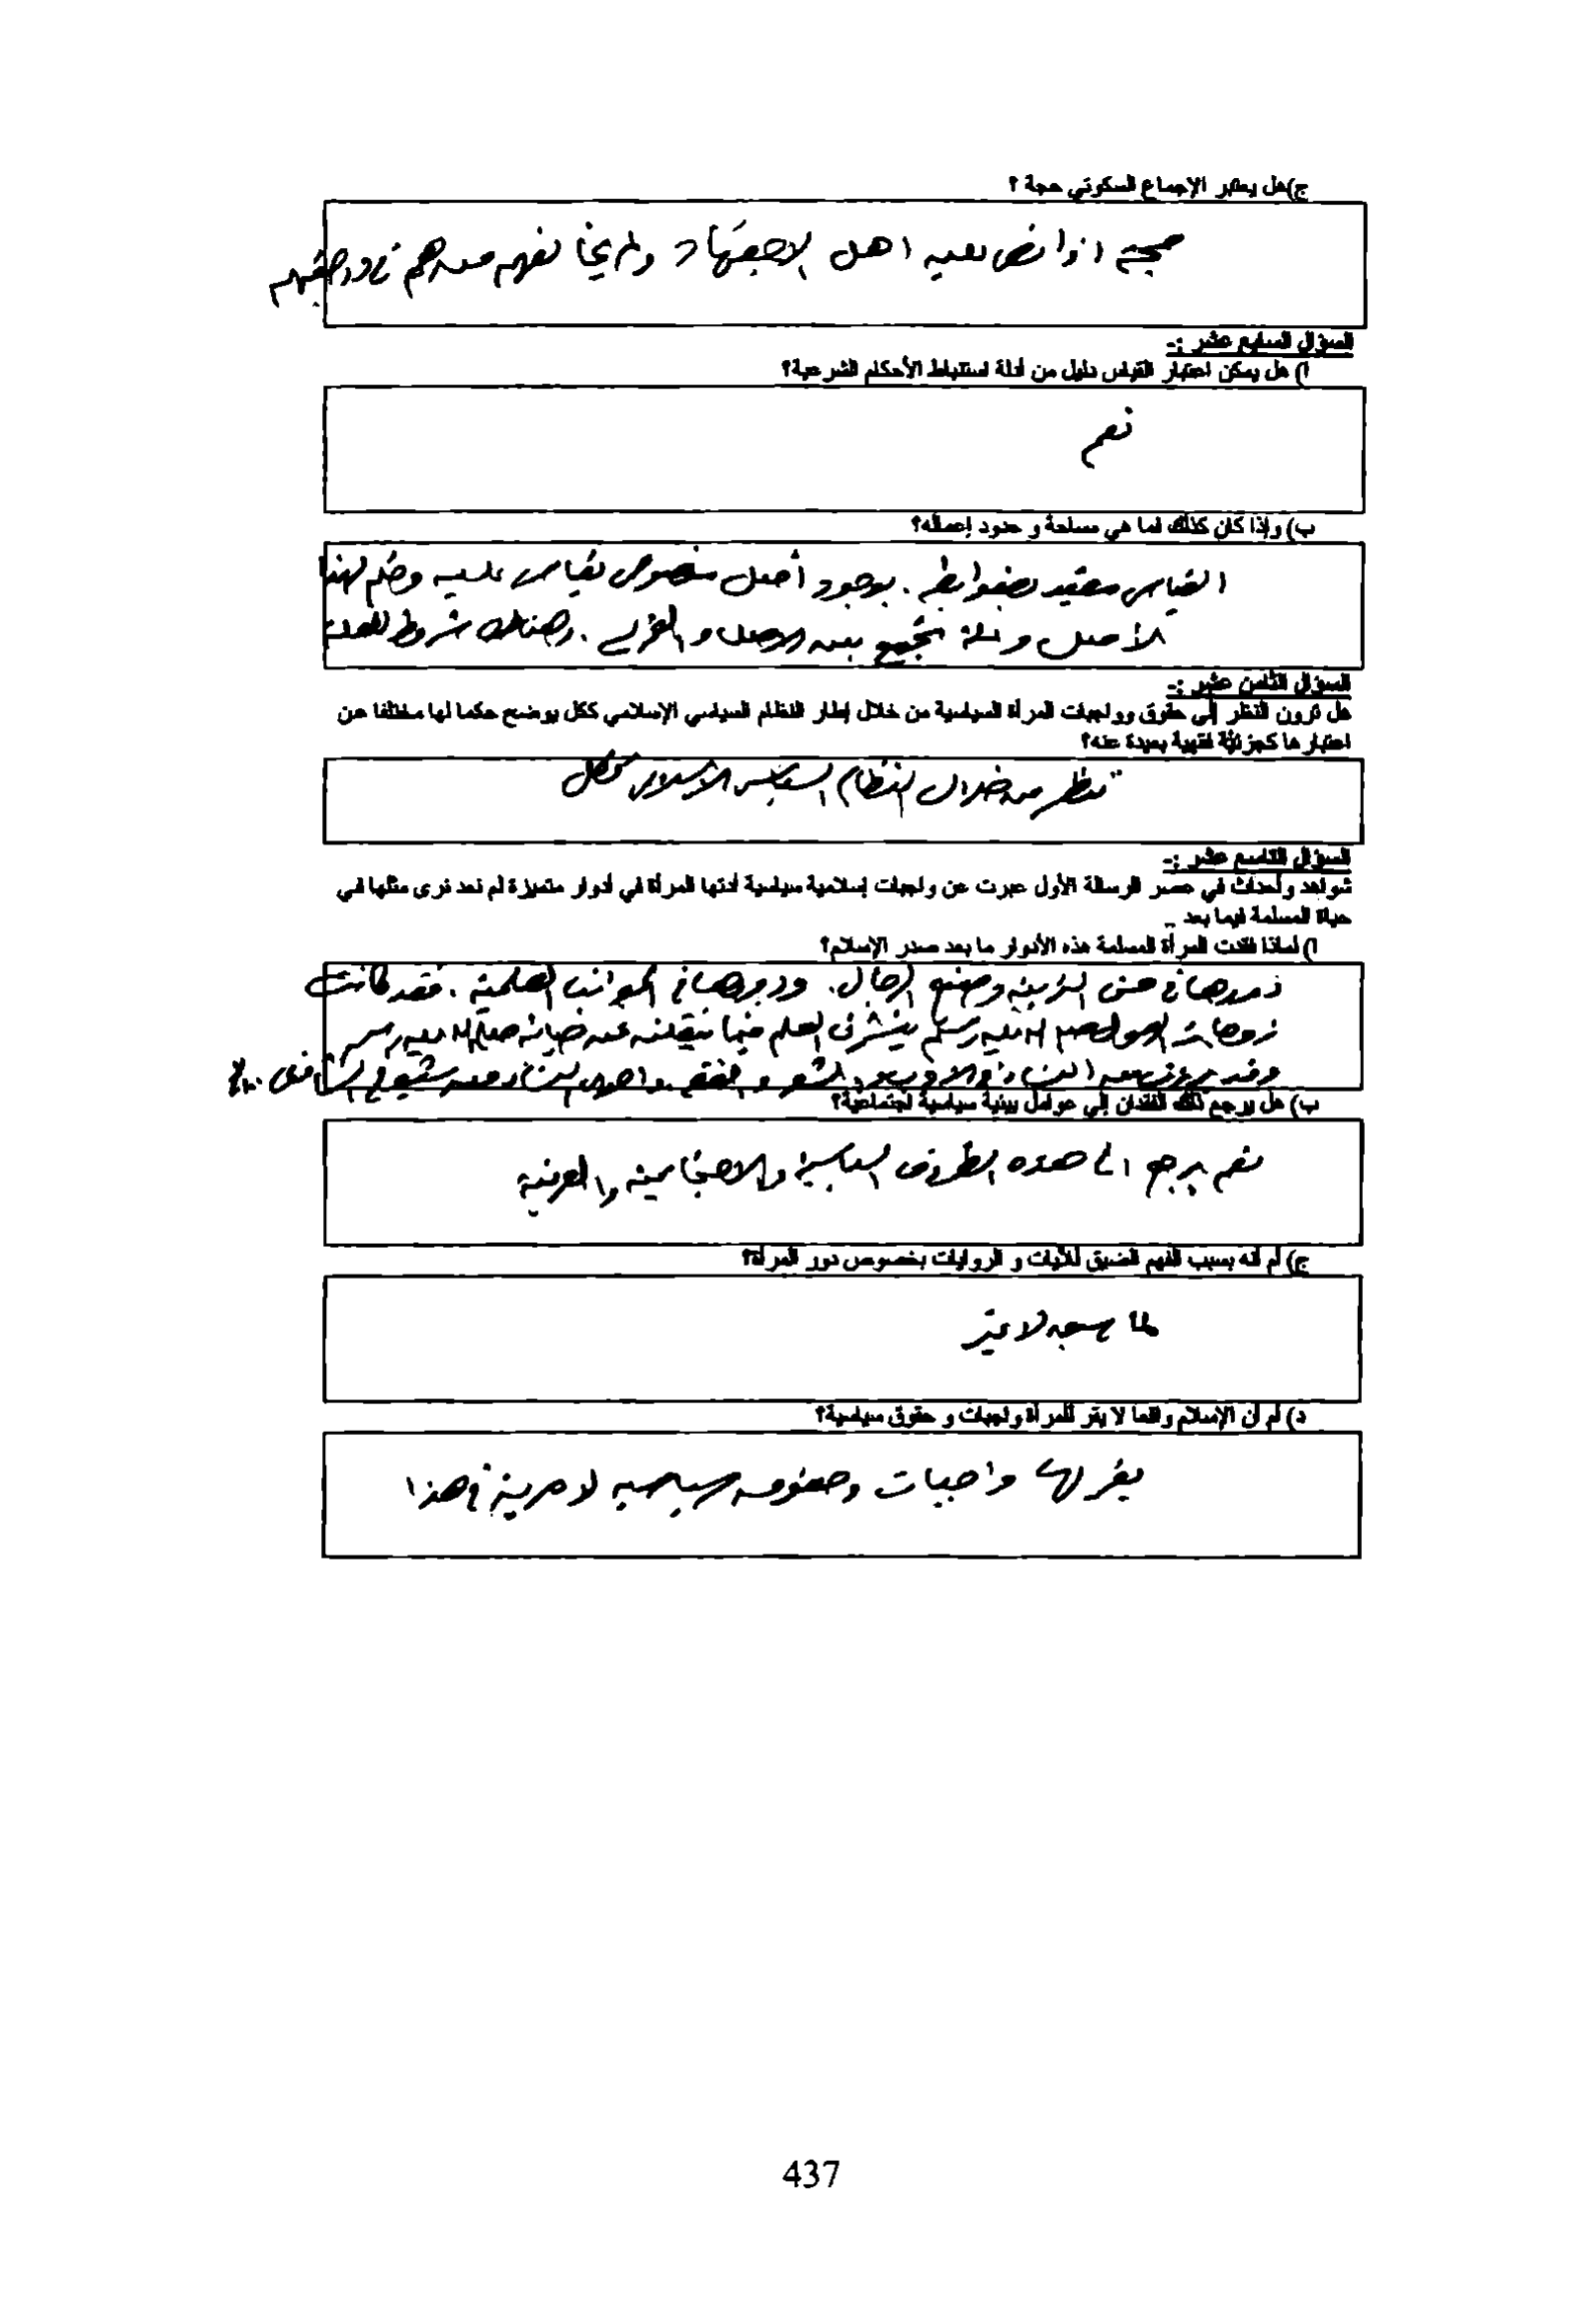 ج) هل يعتبر الإجماع السكوتي حجة ؟
حجة اذا نص عليه اهل الاجتهاد ولم يخالفهم
السؤال السابع عشر :-
أ) هل يمكن اعتبار القياس دليل من أدلة استنباط الأحكام الشرعية؟
نعم
ب) وإذا كان كذلك فما هي مساحة و حدود إعماله؟
القياس مقيد بضوابط . بوجود أصل منصوص يقاس عليه وحكم لهذا
الأصل وعلة تجمع بين الاصل و الفرع . وهناك شروط للعلة
السؤال الثامن عشر :-
هل ترون النظر إلى حقوق وواجبات المرأة السياسية من خلال إطار النظام السياسي الإسلامي ككل يوضح حكما لها مختلفا عن
اعتبارها كجزئية فقهية بعيدة عنه؟
تنظر من خلال النظام السياسي الاسلامي ككل
السؤال التاسع عشر :-
شواهد وأحداث في عصر الرسالة الأول عبرت عن واجبات إسلامية سياسية أدتها المرأة في أدوار متميزة لم نعد نرى مثلها في
حياة المسلمة فيما بعد ..
أ) لماذا فقدت المرأة المسلمة هذه الأدوار ما بعد صدر الإسلام؟
دورها في حسن التربية وصنع الرجال . ودورها في الجوانب العلمية . فقد كانت
زوجات الرسول صلى الله عليه وسلم ينشرن العلم فيما ينقلنه عن حياته صلى الله عليه وسلم
وقد الشعر و الفقه
ب) هل يرجع ذلك الفقدان إلى عوامل بيئية سياسية اجتماعية؟
نعم يرجع الى هذه الظروف السياسية والاجتماعية والعرفية
ج) أم أنه بسبب الفهم الضيق للآيات و الروايات بخصوص دور المرأة؟
لما سبب لا غير
د) أم أن الإسلام واقعا لا يقر للمرأة واجبات و حقوق سياسية؟
يقر لها واجبات وحقوق سياسية لا مرية في هذا
437